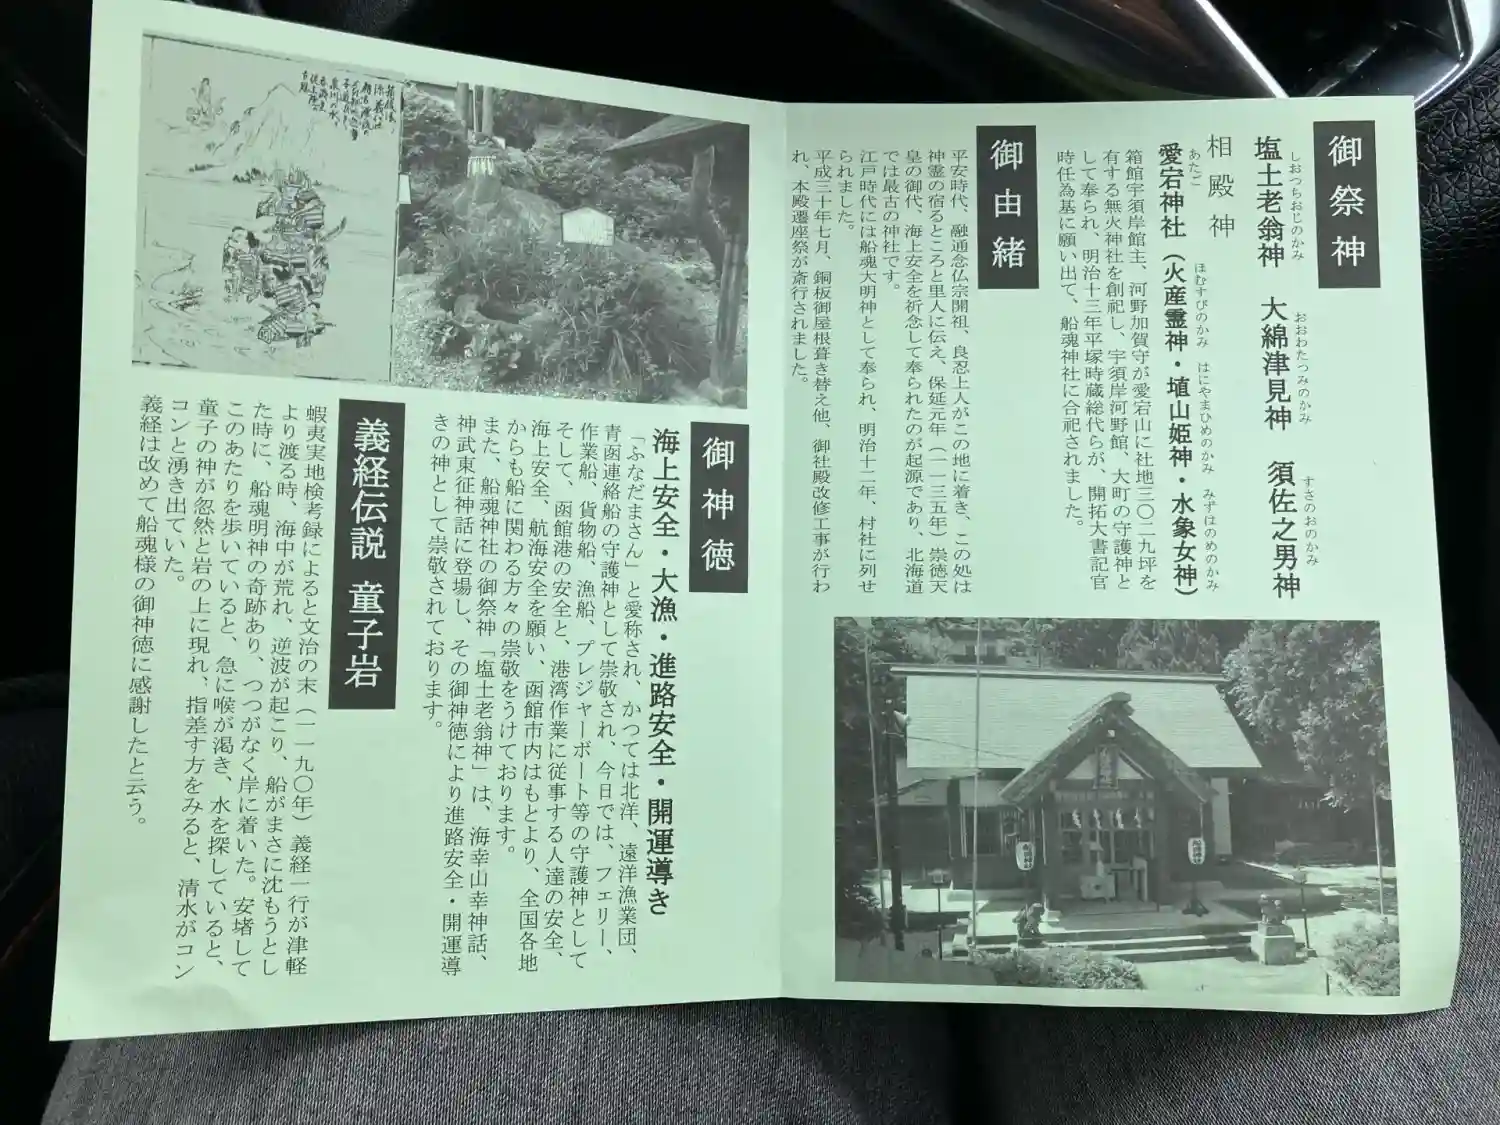 御祭神
塩土老翁神　大綿津見神　須佐之男神
しおつちおじのかみ　おおわたつみのかみ　すさのおのかみ
相殿神
愛宕神社（火産霊神・埴山姫神・水象女神）
あたご　ほむすびのかみ　はにやまひめのかみ　みずはのめのかみ
箱館宇須岸館主、河野加賀守が愛宕山に社地三〇二九坪を
有する無火神社を創祀し、宇須岸河野館、大町の守護神と
して奉られ、明治十三年平塚時蔵総代らが、開拓大書記官
時任為基に願い出て、船魂神社に合祀されました。
御由緒
平安時代、融通念仏宗開祖、良忍上人がこの地に着き、この処は
神霊の宿るところと里人に伝え、保延元年（一一三五年）崇徳天
皇の御代、海上安全を祈念して奉られたのが起源であり、北海道
では最古の神社です。
江戸時代には船魂大明神として奉られ、明治十二年、村社に列せ
られました。
平成三十年七月、銅板御屋根葺き替え他、御社殿改修工事が行わ
れ、本殿遷座祭が斎行されました。
御神徳
海上安全・大漁・進路安全・開運導き
「ふなだまさん」と愛称され、かつては北洋、遠洋漁業団、
青函連絡船の守護神として崇敬され、今日では、フェリー、
作業船、貨物船、漁船、プレジャーボート等の守護神として
そして、函館港の安全と、港湾作業に従事する人達の安全、
海上安全、航海安全を願い、函館市内はもとより、全国各地
からも船に関わる方々の崇敬をうけております。
また、船魂神社の御祭神「塩土老翁神」は、海幸山幸神話、
神武東征神話に登場し、その御神徳により進路安全・開運導
きの神として崇敬されております。
義経伝説　童子岩
蝦夷実地検考録によると文治の末（一一九〇年）義経一行が津軽
より渡る時、海中が荒れ、逆波が起こり、船がまさに沈もうとし
た時に、船魂明神の奇跡あり、つつがなく岸に着いた。安堵して
このあたりを歩いていると、急に喉が渇き、水を探していると、
童子の神が忽然と岩の上に現れ、指差す方をみると、清水がコン
コンと湧き出ていた。
義経は改めて船魂様の御神徳に感謝したと云う。